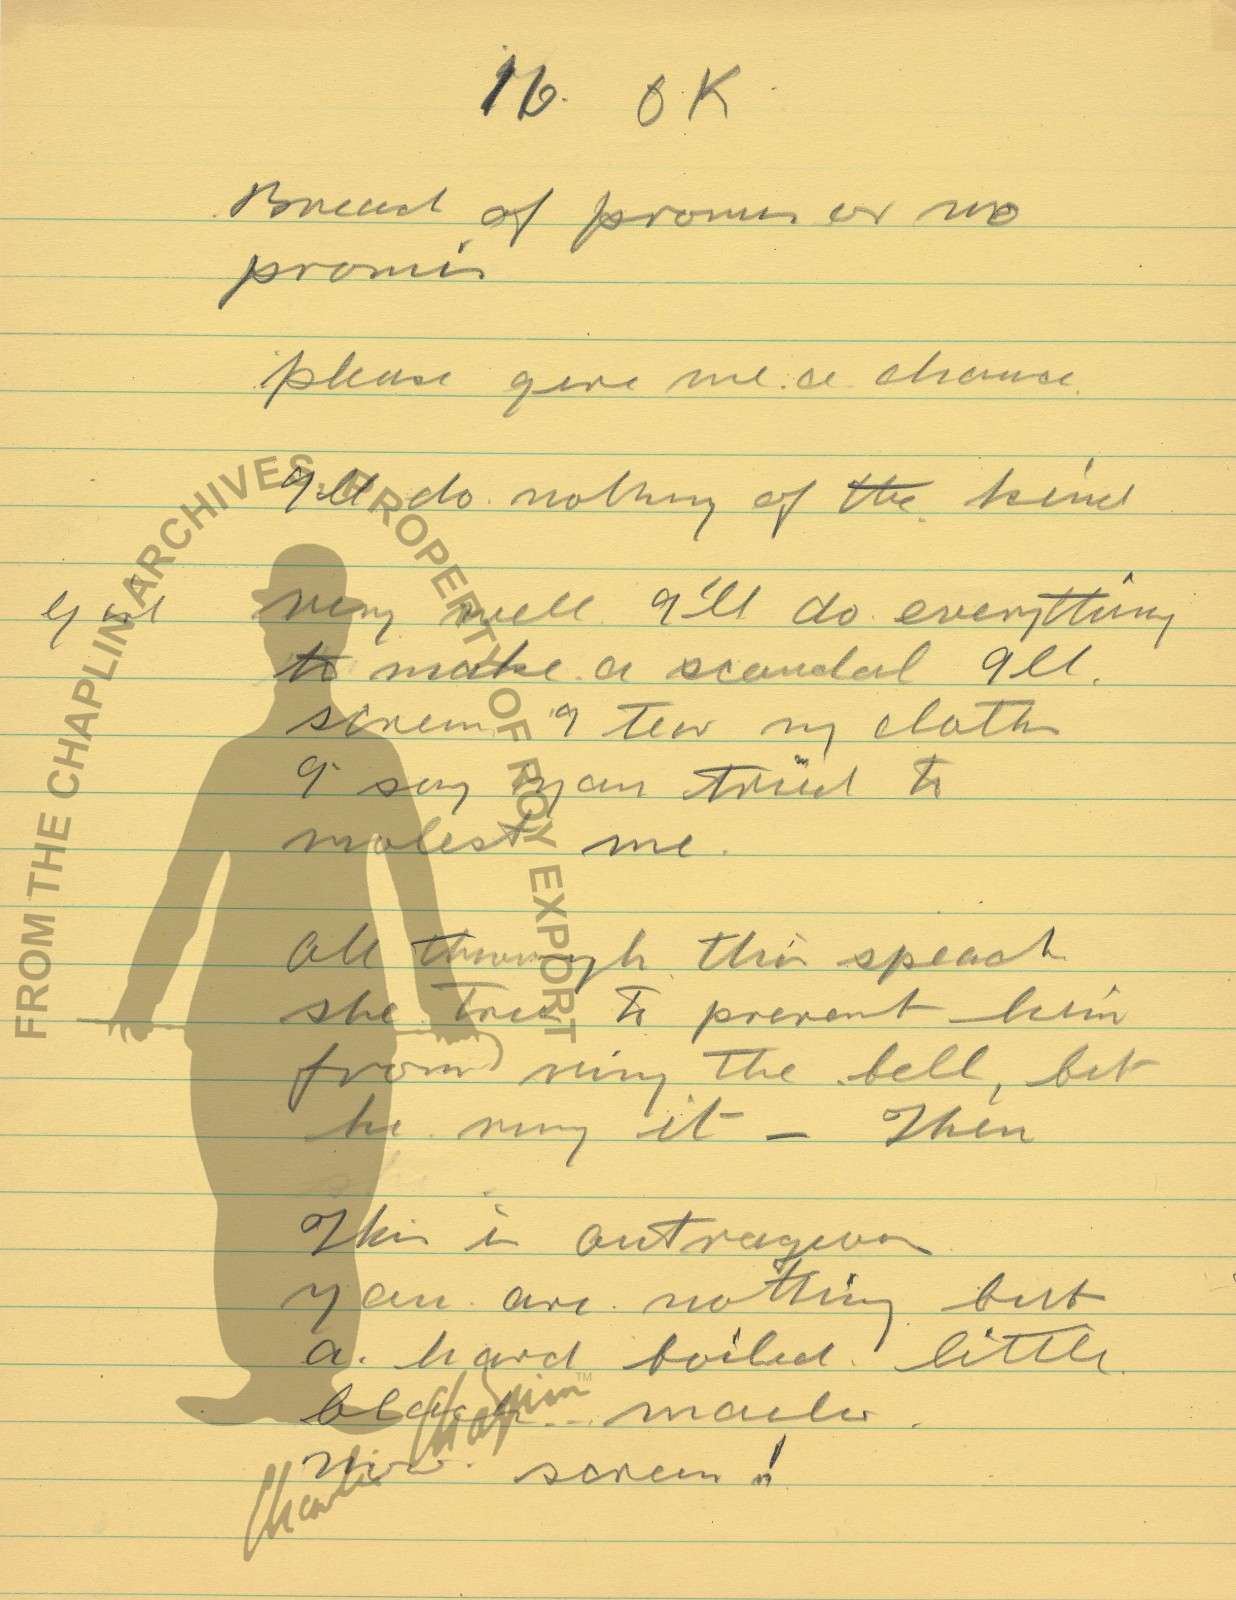 16. OK
Breach of promis or no
promis
please give me a chance.
I'll do nothing of the kind
Girl very well I'll do everything
to make a scandal I'll.
screem I tear my cloths
I say you tried to
molest me.
All through this speach
she tries to prevent him
from ring the bell, but
he rung it – Then
This is outrageous
you are nothing but
a hard boiled little
black mailer.
Now screem!
FROM THE CHAPLIN ARCHIVES, PROPERTY OF ROY EXPORT
Charlie Chaplin™